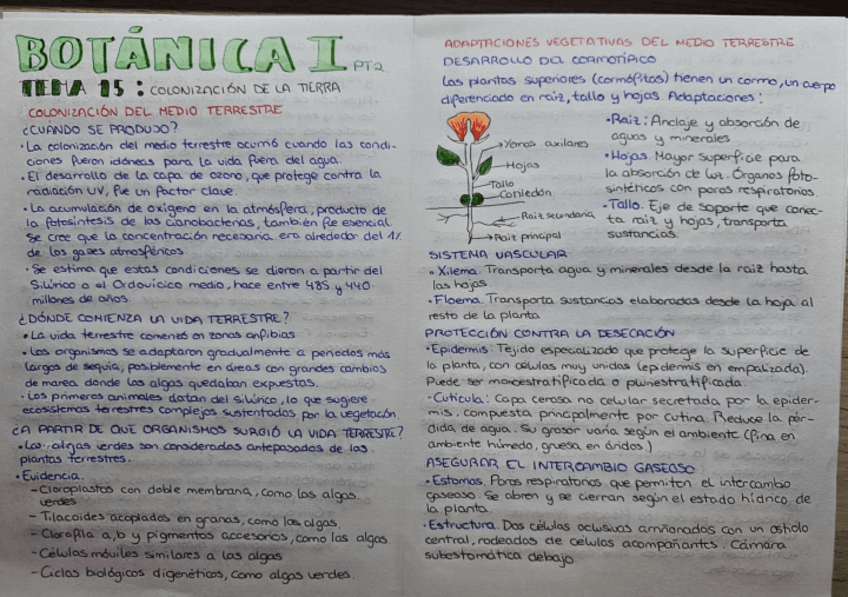 BOTÁNICA I PT2
TEMA 15: COLONIZACIÓN DE LA TIERRA
COLONIZACIÓN DEL MEDIO TERRESTRE
¿CUANDO SE PRODUJO?
• La colonización del medio terrestre ocurrió cuando las condi-
ciones fueron idóneas para la vida fuera del agua.
• El desarrollo de la capa de ozono, que protege contra la
radiación UV, fue un factor clave.
• La acumulación de oxígeno en la atmósfera, producto de
la fotosíntesis de las cianobacterias, también fue esencial.
Se cree que la concentración necesaria era alrededor del 1%
de los gases atmosféricos
• Se estima que estas condiciones se dieron a partir del
Silúrico o el Ordovícico medio, hace entre 485 y 440
millones de años.
¿DÓNDE COMIENZA LA VIDA TERRESTRE?
• La vida terrestre comenzó en zonas anfibias
• Los organismos se adaptaron gradualmente a periodos más
largos de sequía, posiblemente en áreas con grandes cambios
de marea donde las algas quedaban expuestas.
• Los primeros animales datan del silúrico, lo que sugiere
ecosistemas terrestres complejos sustentados por la vegetación.
¿A PARTIR DE QUE ORGANISMOS SURGIÓ LA VIDA TERRESTRE?
• Las algas verdes son consideradas antepasados de las
plantas terrestres.
• Evidencia.
- Cloroplastos con doble membrana, como las algas
verdes
- Tilacoides acoplados en granas, como las algas.
- Clorofila a, b y pigmentos accesorios, como las algas.
- Células móviles similares a las algas
- Ciclos biológicos digenéticos, como algas verdes.
ADAPTACIONES VEGETATIVAS DEL MEDIO TERRESTRE
DESARROLLO DEL CORMOTÍPICO
Las plantas superiores (cormófitas) tienen un cormo, un cuerpo
diferenciado en raíz, tallo y hojas. Adaptaciones:
Yemas axilares
Hojas
Tallo
Cotiledón
Raiz secundaria
Raiz principal
• Raiz: Anclaje y absorción de
aguas y minerales
• Hojas Mayor superficie para
la absorción de luz. Órganos foto-
sintéticos con poros respiratorios.
• Tallo. Eje de soporte que conec-
ta raiz y hojas, transporta
sustancias.
SISTEMA VASCULAR
• Xilema. Transporta agua y minerales desde la raiz hasta
las hojas.
• Floema. Transporta sustancias elaboradas desde la hoja al
resto de la planta
PROTECCIÓN CONTRA LA DESECACIÓN
• Epidermis. Tejido especializado que protege la superficie de
la planta, con células muy unidas (epidermis en empalizada).
Puede ser monoestratificada o pluriestratificada.
- Cutícula: Capa cerosa no celular secretada por la epider-
mis, compuesta principalmente por cutina. Reduce la pér-
dida de agua. Su grosor varía según el ambiente (fina en
ambiente húmedo, gruesa en áridos.)
ASEGURAR EL INTERCAMBIO GASEOSO
• Estomas. Poros respiratorios que permiten el intercambio
gaseoso. Se abren y se cierran según el estado hídrico de
la planta.
• Estructura. Dos células oclusivas arriñonadas con un ostiolo
central, rodeadas de células acompañantes. Cámara
subestomática debajo